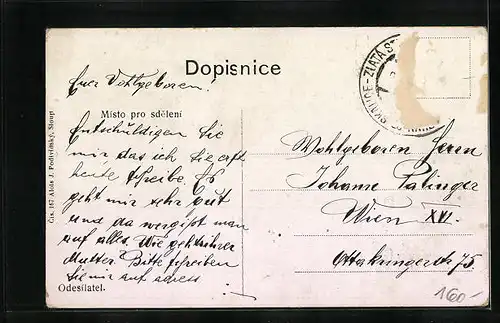 Dopisnice
SKALICE-ZLATÁ
Euer Wohlgeboren!
Místo pro sdělení
Entschuldigen Sie
mir das ich Sie erst
heute schreibe. Es
geht mir sehr gut
und da vergißt man
auf alles. Wie geht Ihrer
Mutter. Bitte schreiben
Sie mir auf adress
Odesílatel.
Čís. 167 Alois J. Podivínský, Sloup
Wohlgeboren Herrn
Johann Palinger
Wien XVI.
Ottakringerstr 75
160-